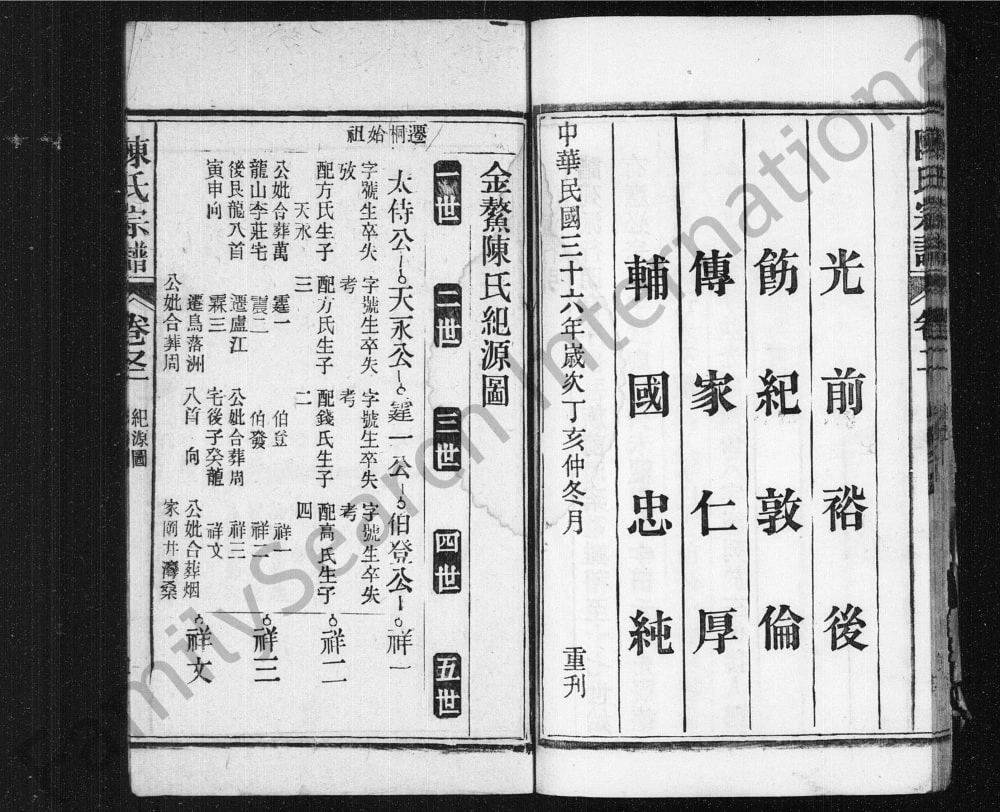 光前裕後
飭紀敦倫
傳家仁厚
輔國忠純
中華民國三十六年歲次丁亥仲冬月 重刊
金鰲陳氏紀源圖
一世 二世 三世 四世 五世
遷桐始祖
太侍公 天永公 霆一公 伯登公 祥一
字號生卒失 字號生卒失 字號生卒失 字號生卒失
攷 考 考 考
配方氏生子 配方氏生子 配錢氏生子 配高氏生子 祥二
天永 三 二 四
公妣合葬萬 霆一 伯登 祥一
龍山李莊宅 震二 伯發 祥二 祥三
後艮龍八首 遷廬江 公妣合葬周 祥三
寅申向 霖三 宅後子癸龍 祥文
遷鳥落洲 八首 向 公妣合葬烟 祥文
公妣合葬周 家岡井灣桑
陳氏宗譜 卷之一 紀源圖
FamilySearch International